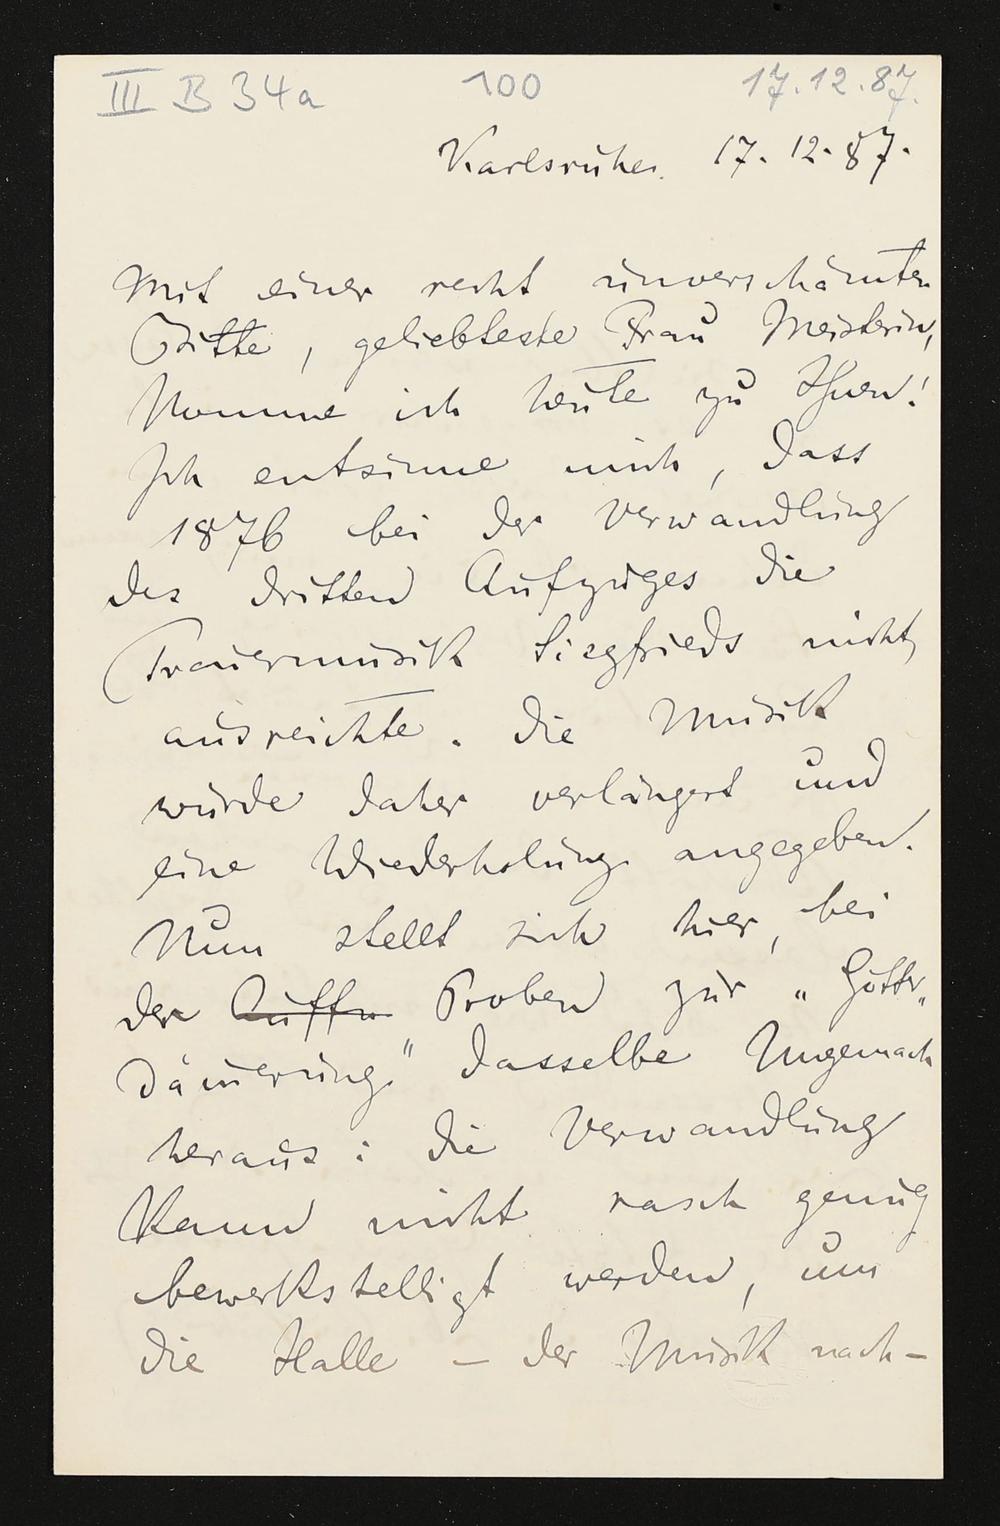 III B 34a 100 17.12.87.
Karlsruhe. 17. 12. 87.
Mit einer recht unverschämten
Bitte, geliebteste Frau Meisterin,
komme ich heute zu Ihnen!
Ich entsinne mich, dass
1876 bei der Verwandlung
des dritten Aufzuges die
Trauermusik Siegfrieds nicht
ausreichte. Die Musik
wurde daher verlängert und
eine Wiederholung angegeben.
Nun stellt sich hier, bei
den Auffu Proben zur „Götter„
dämerung" dasselbe Ungemach
heraus: die Verwandlung
kann nicht rasch genug
bewerkstelligt werden, um
die Halle – der Musik nach–